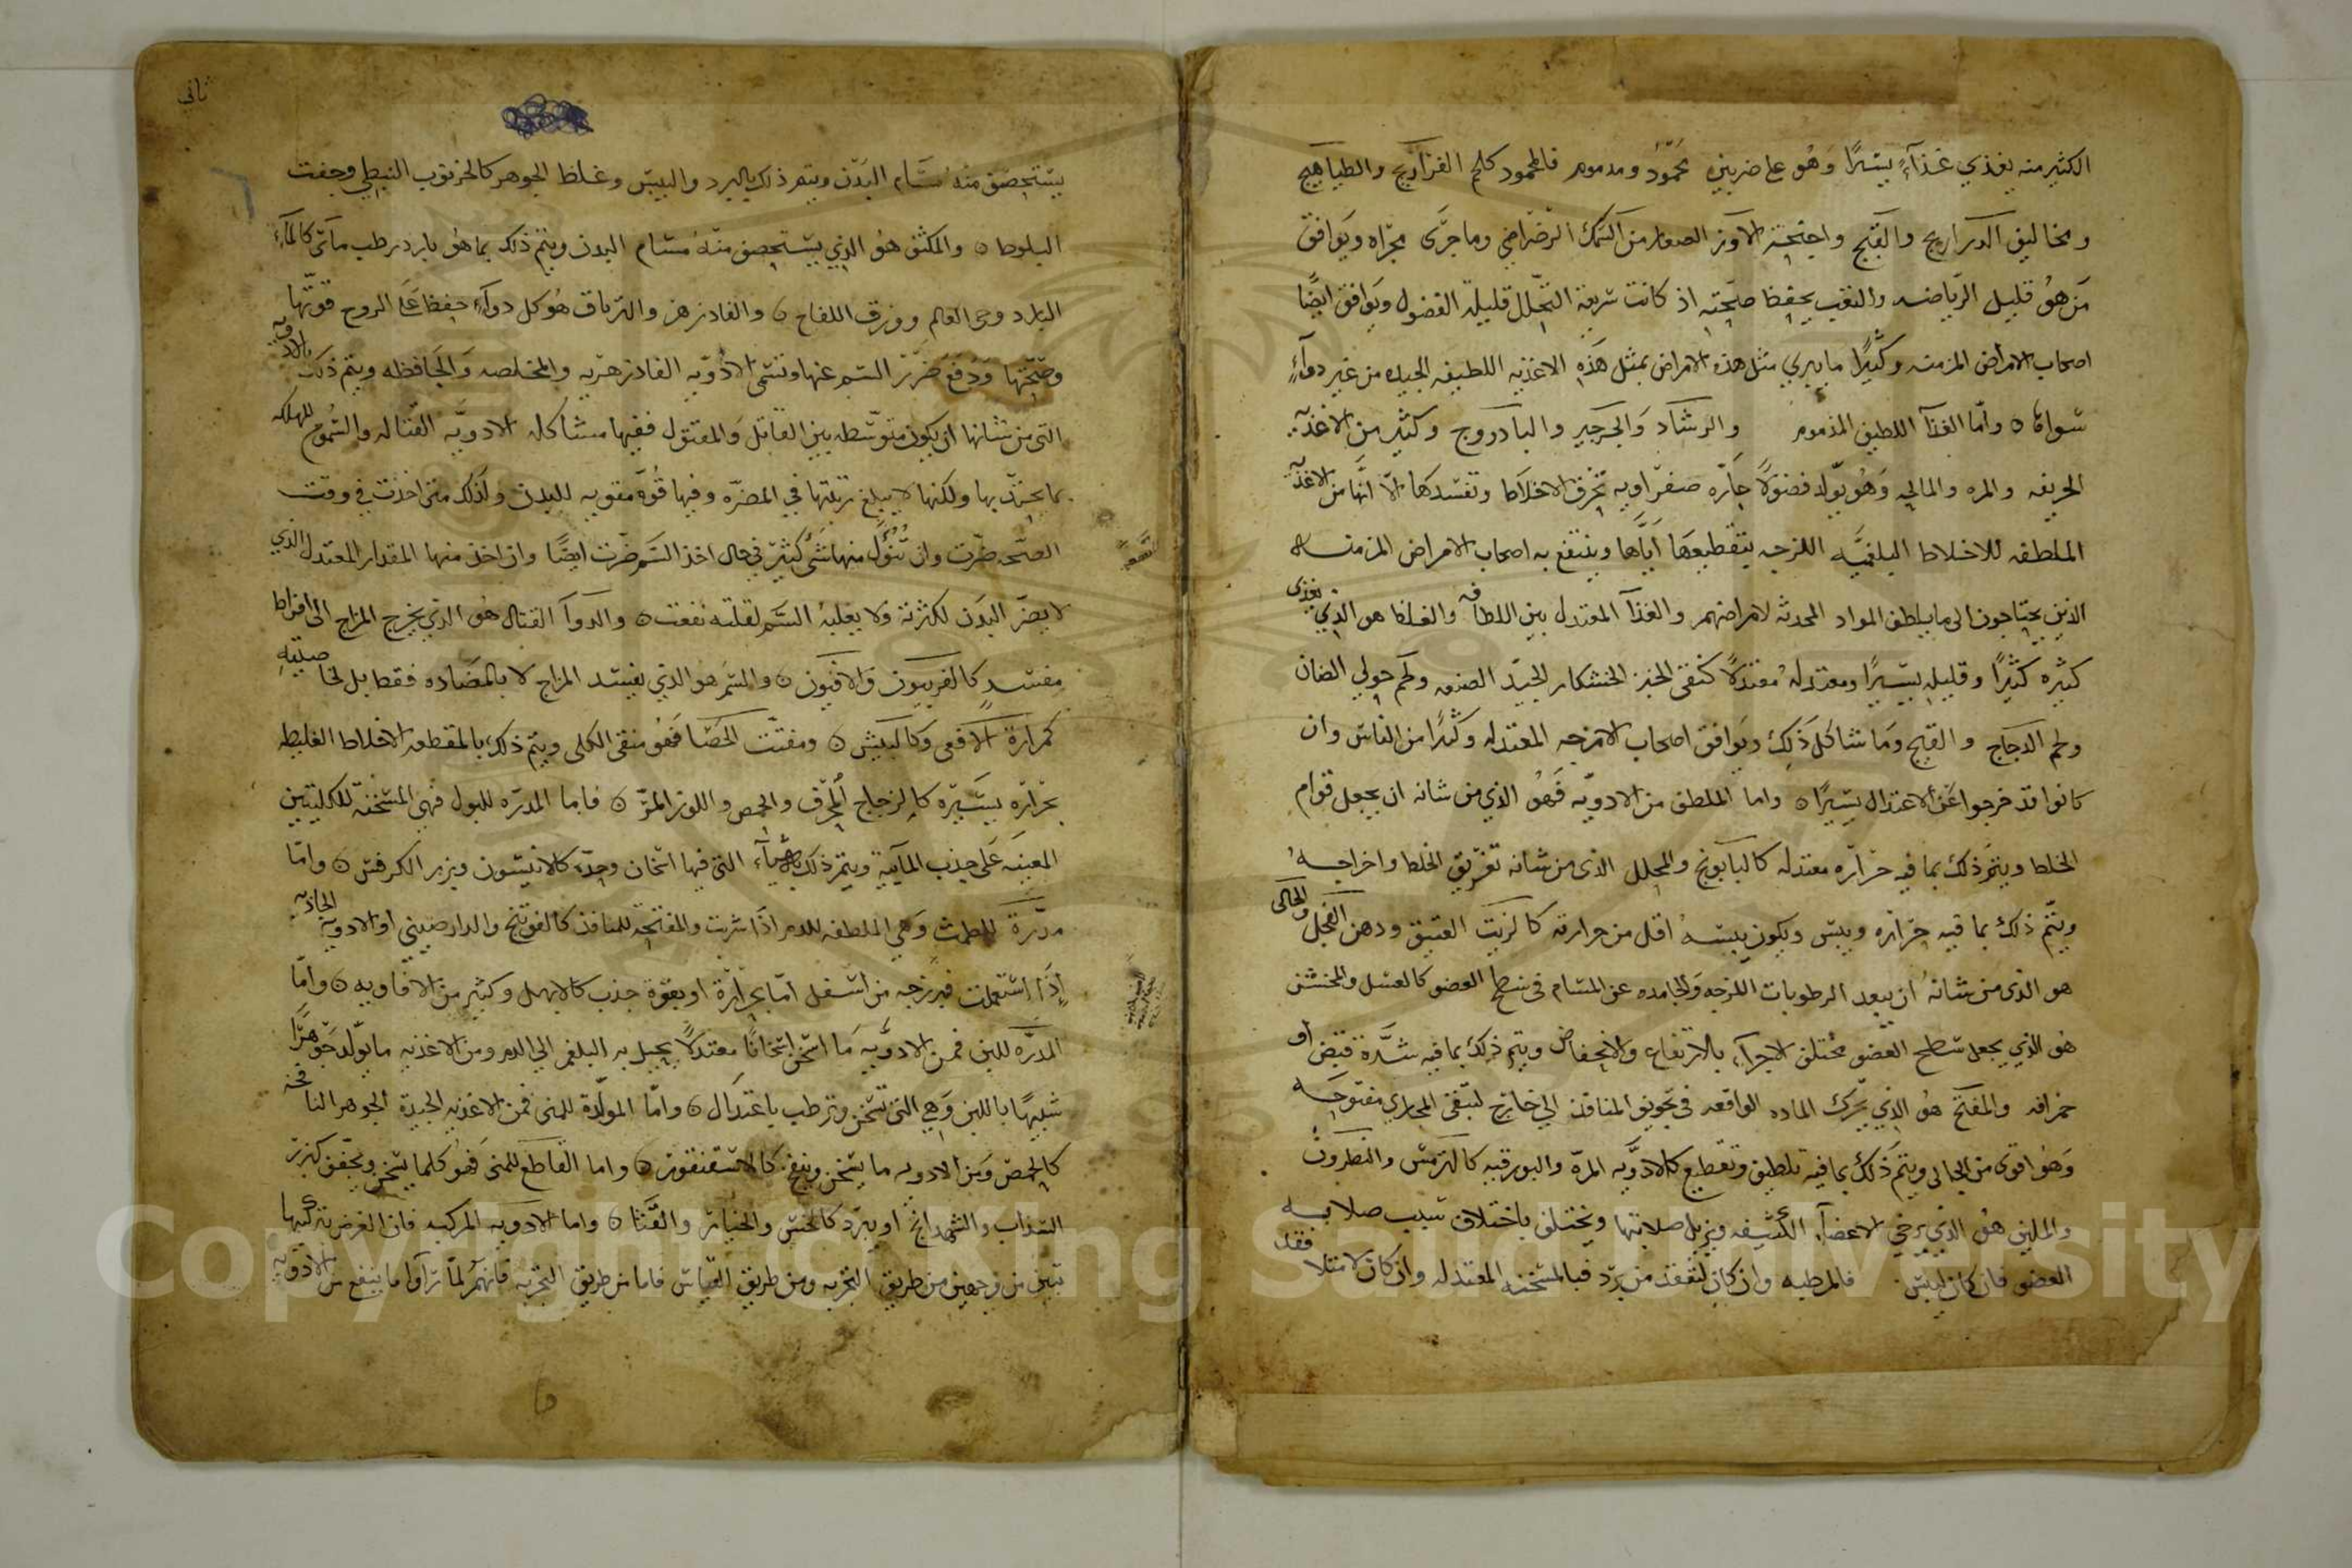 الكثير منه يغذي غذآءً يسيرًا وهو على ضربين محمودٌ ومذموم فالمحمود كلحم الفراريج والطياهيج
ومخاليف الدراريج والقبج واجنحة الاوز الصغار من السمك الرضراضي وما جرى مجراه ويوافق
من هو قليل الرياضه والتعب يحفظ صحته اذ كانت سريعة التحلل قليلة الفضول ويوافق ايضًا
اصحاب الامراض المزمنه وكثيرًا ما يبري مثل هذه الامراض بمثل هذه الاغذيه اللطيفه الجيده من غير دوآءٍ
سواها ٥ واما الغذآ اللطيف المذموم والرشاد والجرجير والبادروج وكثير من الاغذيه
الحريفه والمره والمالحه وهو يولد فضولًا حاره صفراويه تحرق الاخلاط وتفسدها الا انها من الاغذيه
الملطفه للاخلاط البلغميه اللزجه بتقطيعها اياها وينتفع به اصحاب الامراض المزمنه
الذين يحتاجون الى ما يلطف المواد المحدثه لامراضهم والغذآ المعتدل بين اللطافه والغلظ هو الذي يغذي
كثيره كثيرًا وقليله يسيرًا ومعتدله معتدلًا كنقي الخبز الخشكار الجيد الصنعه ولحم حولي الضان
ولحم الدجاج والقبج وما شاكل ذلك ويوافق اصحاب الامزجه المعتدله وكثيرًا من الناس وان
كانوا قد خرجوا عن الاعتدال يسيرًا ٥ واما الملطف من الادويه فهو الذي من شانه ان يجعل قوام
الخلط ويتم ذلك بما فيه حراره معتدله كالبابونج والمحلل الذى من شانه تفريق الخلط واخراجه
ويتم ذلك بما فيه حراره ويبس ويكون يبسه اقل من حرارته كالزيت العتيق ودهن الفجل والجالى
هو الذى من شانه ان يبعد الرطوبات اللزجه والجامده عن المسام فى سطح العضو كالعسل والمخشن
هو الذي يجعل سطح العضو مختلف الاجزآء بالارتفاع والانخفاض ويتم ذلك بما فيه شدة قبض او
حرافه والمفتح هو الذي يحرك الماده الواقعه فى تجويف المنافذ الى خارج لتبقى المجاري مفتوحه
وهو اقوى من الجالى ويتم ذلك بما فيه تلطيف وتقطيع كالادويه المره والبورقيه كالترمس والنطرون
والملين هو الذي يرخي الاعضآء الكثيفه ويزيل صلابتها ويختلف باختلاف سبب صلابه
العضو فان كان ليبس فالمرطبه وان كان لتعقد من برد فبالمسخنه المعتدله وان كان لامتلا فقد
ثانى
يستحصف منه مسام البدن ويتم ذلك بالبرد واليبس وغلظ الجوهر كالخرنوب النبطي وجفت
البلوط ٥ والمكثف هو الذي يستحصف منه مسام البدن ويتم ذلك بما هو بارد رطب مائي كالمآء
البارد وحي العالم وورق اللفاح ٥ والفادزهر والترياق هو كل دوآءٍ حفظ على الروح قوتها
وصحتها ودفع ضرر السم عنها وتسمى الادويه الفادزهريه والمخلصه والحافظه ويتم ذلك بالادويه
التى من شانها ان يكون متوسطه بين القاتل والمقتول ففيها مشاكله الادويه القتاله والسموم المهلكه
بما يحد بها ولكنها لا يبلغ رتبتها في المضره وفيها قوه مقويه للبدن ولذلك متى اخذت في وقت
الصحه ضرت وان تنوول منها شئ كثير في حال اخذ السم ضرت ايضًا وان اخذ منها المقدار المعتدل الذي
لا يضر البدن لكثرته ولا يغلبه السم لقلته نفعت ٥ والدوآ القتال هو الذي يخرج المزاج الى افراط
مفسد كالفربيون والافيون ٥ والسم هو الذي يفسد المزاج لا بالمضاده فقط بل لخاصيته
كمرارة الافعى وكالبيش ٥ ومفتت الحصا فهو منقي الكلى ويتم ذلك بالمقطعه الاخلاط الغليظه
بحراره يسيره كالزجاج المحرق والحمص واللوز المر ٥ فاما المدره للبول فهي المسخنه للكليتين
المعينه على جذب المآئية ويتم ذلك بالاشيآء التى فيها اسخان وحده كالانيسون وبزر الكرفس ٥ واما
مدرة للطمث وهي الملطفه للدم اذا شربت والمفتحه للمنافذ كالفوتنج والدارصيني او الادويه الجاذبه
إذا استعملت فرزجه من اسفل اما بحرارة او بقوة جذب كالابهل وكثير من الافاويه ٥ واما
المدره للبن فمن الادويه ما اسخن اسخانًا معتدلًا يحيل به البلغم الى الدم ومن الاغذيه ما يولد جوهرًا
شبيهًا باللبن وهي التى تسخن وترطب باعتدال ٥ واما المولدة للمنى فمن الاغذيه الجيدة الجوهر النافخه
كالحمص ومن الادويه ما يسخن وينفخ كالاسقنقور ٥ واما القاطع للمنى فهو كلما يسخن ويجفف كبزر
السذاب والشهدانج او يبرد كالخس والخيار والقثا ٥ واما الادويه المركبه فان الغرض بتركيبها
تبين من وجهين من طريق التجربه ومن طريق القياس فاما من طريق التجربه فانهم لما رآوا ما ينفع من الادويه